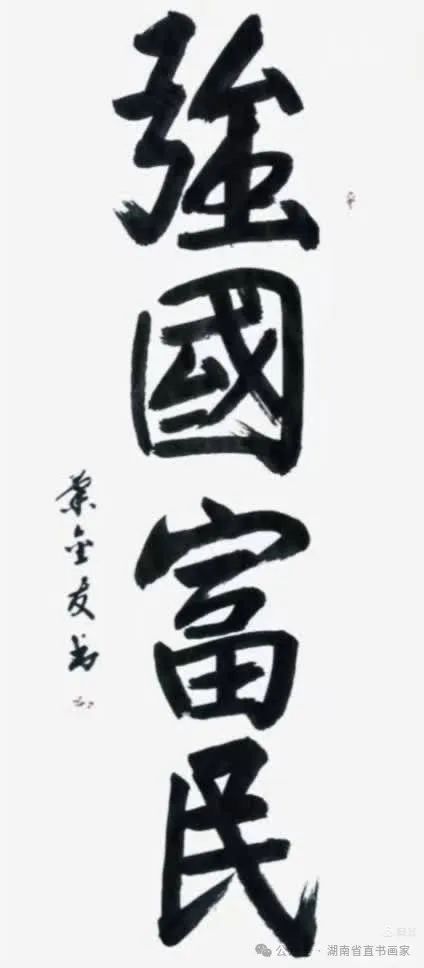 強國富民
葉金友书
公众号 · 湖南省直书画家